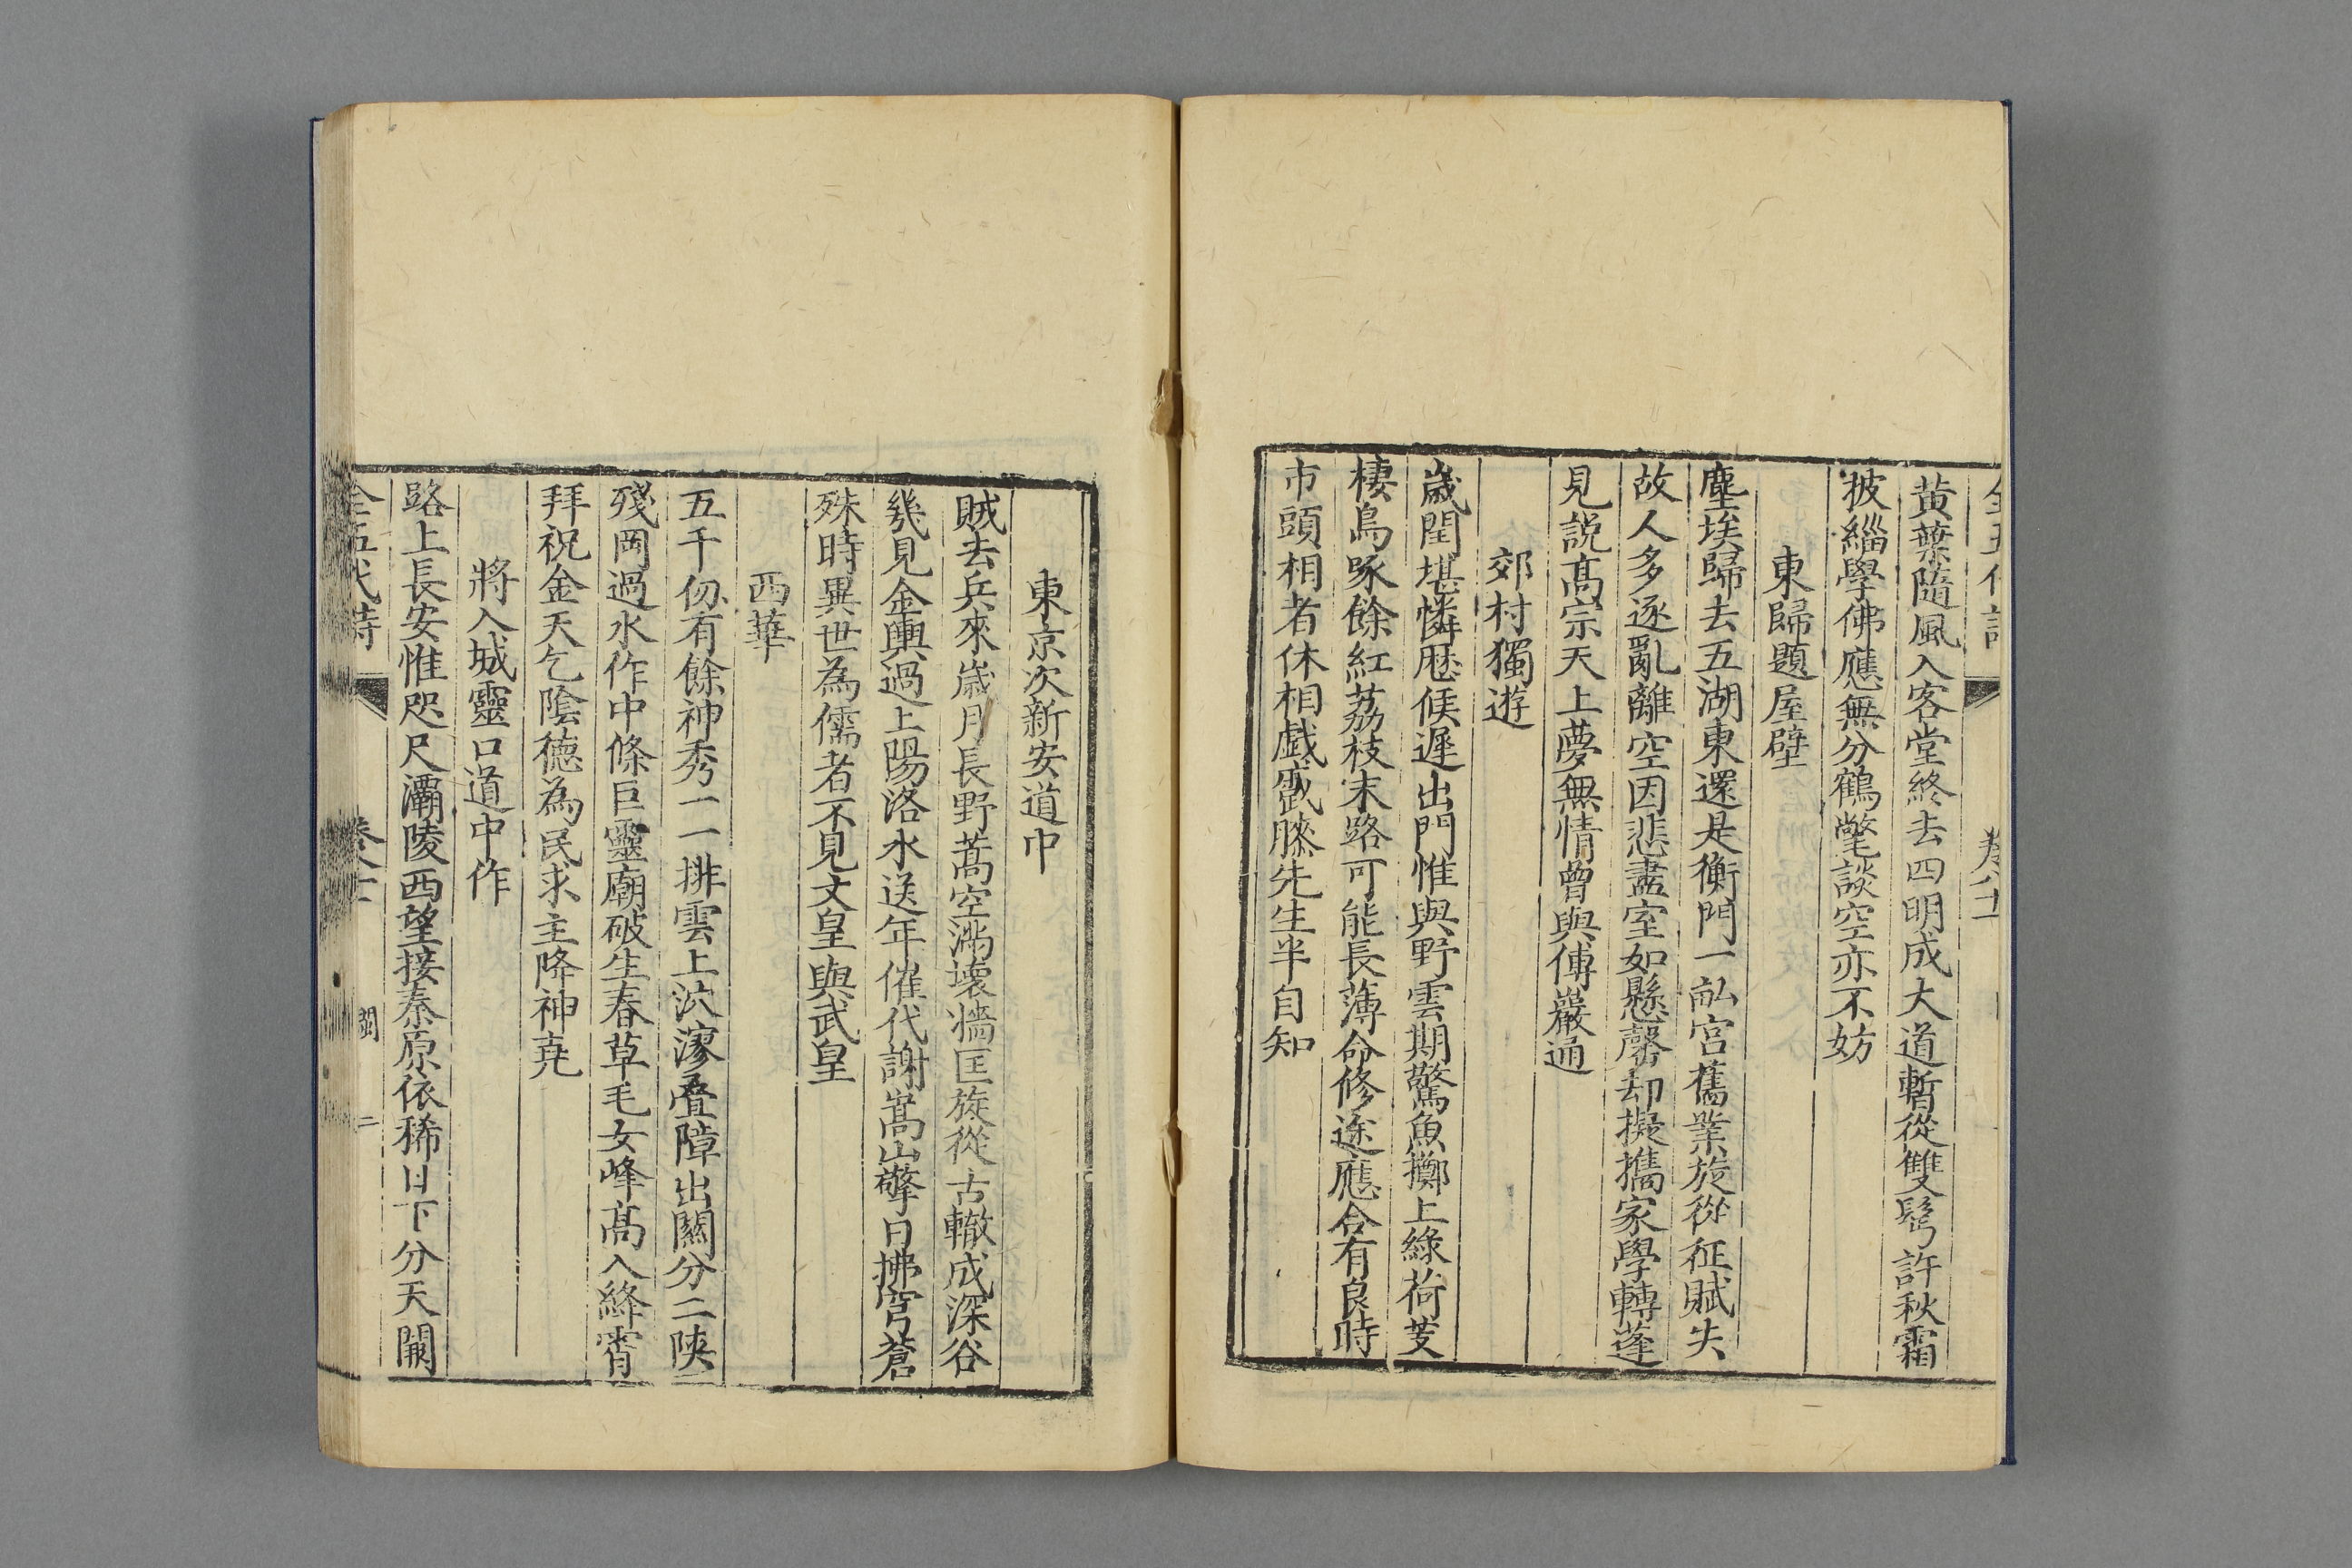 黃葉隨風入客堂終去四明成大道暫從雙鬂許秋霜
披緇學佛應無分鶴氅談空亦不妨
東歸題屋壁
塵埃歸去五湖東還是衡門一畝宮舊業旋從征賦失
故人多逐亂離空因悲盡室如懸罄却擬攜家學轉蓬
見說髙宗天上夢無情曾與傅巖通
郊村獨遊
歲閏堪憐厯候遲出門惟與野雲期驚魚擲上綠荷芰
棲鳥啄餘紅荔枝末路可能長薄命修途應合有良時
市頭相者休相戯蹙膝先生半自知
東京次新安道中
賊去兵來歲月長野蒿空滿壞墻匡旋從古轍成深谷
幾見金輿過上陽洛水送年催代謝嵩山擎日拂穹蒼
殊時異世為儒者不見文皇與武皇
西華
五千仞有餘神秀一一排雲上泬漻疊障出關分二陜
殘岡過水作中條巨靈廟破生春草毛女峰髙入絳霄
拜祝金天乞陰德為民求主降神堯
將入城靈口道中作
路上長安惟咫尺灞陵西望接秦原依稀日下分天闕
全五代詩
閩
二